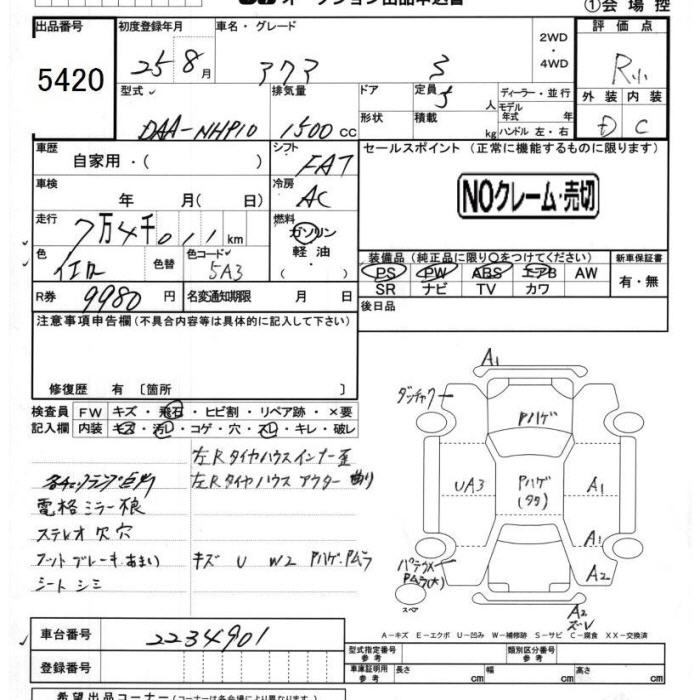 オークション出品申込書 ①会場控
出品番号 初度登録年月 車名・グレード 評価点
5420 25 8月 アクア S 2WD・4WD R小
型式 排気量 ドア 定員 ディーラー・並行 外装 内装
DAA-NHP10 1500cc 5人 モデル年式 年 D C
形状 積載 kg ハンドル 左・右
車歴 シフト セールスポイント(正常に機能するものに限ります)
自家用・( ) FAT
車検 冷房
年 月( 日) AC NOクレーム・売切
走行 燃料
7万4千011km ガソリン
軽油
・( )
色 色替 色コード 装備品(純正品に限り○をつけてください) 新車保証書
イエロー 5A3 PS PW ABS エアB AW 有・無
SR ナビ TV カワ
R券 9980円 名変通知期限 月 日 後日品
注意事項申告欄(不具合内容等は具体的に記入して下さい)
修復歴 有〔箇所 〕
検査員 FW キズ・飛石・ヒビ割・リペア跡・×要
記入欄 内装 キズ・汚レ・コゲ・穴・スレ・キレ・破レ
左Rタイヤハウスインナー歪
各チェックランプ点灯 左Rタイヤハウスアウター曲り
電格ミラー根
ステレオ欠穴
フットブレーキあまい キズ U W2 Pハゲ.Pムラ
シートシミ
A1
ダンチャクー
Pハゲ
UA3 Pハゲ A1
(タタ)
A1
A2
パテウメ
Pムラ(大)
スペア
A2
ズーV
A-キズ E-エクボ U-凹み W-補修跡 S-サビ C-腐食 XX-交換済
車台番号 2234901
型式指定番号 参考 類別区分番号 参考
登録番号 車庫証明用 参考 長さ cm 幅 cm 高さ cm
希望出品コーナー(コーナーは各会場により異なります)